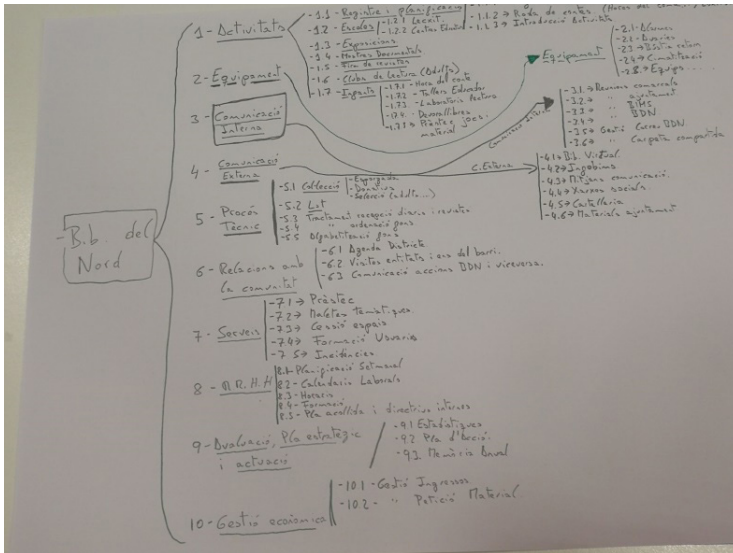 - B.b. del Nord
1 - Activitats
- 1.1 - Registre i planificació
- 1.2 - Escoles
- 1.2.1 Lecxit.
- 1.2.2
- 1.3 - Exposicions
- 1.4 - Mostres Documentals
- 1.5 - Fira de revistes
- 1.6 - Clubs de Lectura (Adults)
- 1.7 - Infants
- 1.7.1 - Hora del conte
- 1.7.2 - Tallers Educador
- 1.7.3 - Laboratoris lectura
- 1.7.4 - Devorallibres
- 1.7.5 Préstec jocs.
material
- 1.1.2 → Roda de contes.
- 1.1.3 → Introducció Activitats
2 - Equipament
Equipament
- 2.1 - Alarmes
- 2.2 -
- 2.3 → Bústia retorn
- 2.4 → Climatització
- 2.5 → Equips
3 - Comunicació Interna
Comunicació Interna
- 3.1 → Reunions comarcals
- 3.2 → " ajuntament
- 3.3 → " BIMS
- 3.4 → " BDN
- 3.5 → Gestió Correu BDN
- 3.6 → " Carpeta compartida
4 - Comunicació Externa
C. Externa
- 4.1 → Bib. Virtual.
- 4.2 → Infobims
- 4.3 → Mitjans comunicació.
- 4.4 → Xarxes socials.
- 4.5 → Cartelleria
- 4.6 → Materials ajuntament
5 - Procés Tècnic
- 5.1 Col·lecció
- Esporgada
- Donatius
- Selecció (adults...)
- 5.2 Lot
- 5.3 Tractament recepció diaris i revistes
- 5.4 " ordenació fons
- 5.5 Alfabetització fons
6 - Relacions amb la comunitat
- 6.1 Agenda Districte.
- 6.2 Visites entitats i ens del barri.
- 6.3 Comunicació accions BDN i viceversa.
7 - Serveis
- 7.1 → Préstec
- 7.2 → Maletes temàtiques.
- 7.3 → Cessió espais
- 7.4 → Formació Usuaris
- 7.5 → Incidències
8 - RR.HH
8.1 - Planificació Setmanal
8.2 - Calendaris Laborals
8.3 - Horaris
8.4 - Formació
8.5 - Pla acollida i directrius internes
9 - Avaluació, Pla estratègic i actuació
- 9.1 Estadístiques
- 9.2 Pla d'Acció.
- 9.3 Memòria Anual
10 - Gestió econòmica
- 10.1 - Gestió Ingressos
- 10.2 - " Petició Material